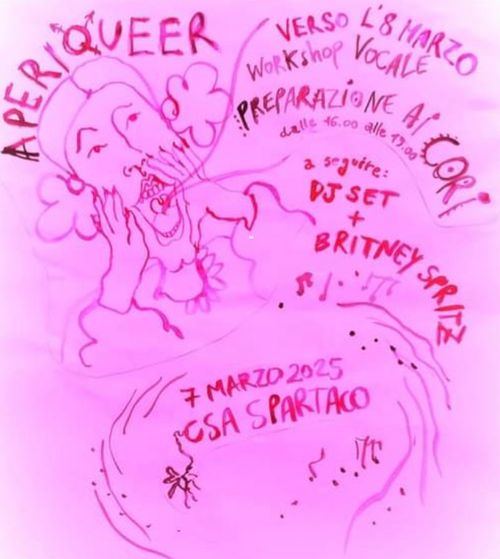 APERIQUEER
VERSO L'8 MARZO
WORKSHOP VOCALE
PREPARAZIONE AI CORI
dalle 16.00 alle 19.00
a seguire:
DJ SET
+
BRITNEY SPRITZ
7 MARZO 2025
CSA SPARTACO